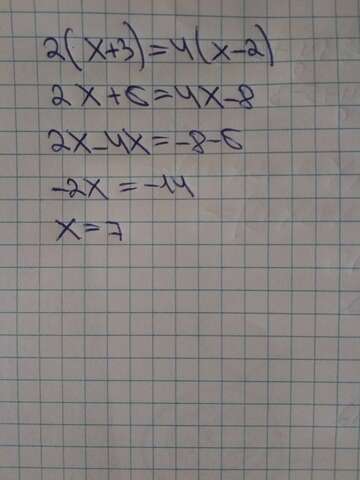 2(x+3)=4(x-2)
2x+6=4x-8
2x-4x=-8-6
-2x=-14
x=7